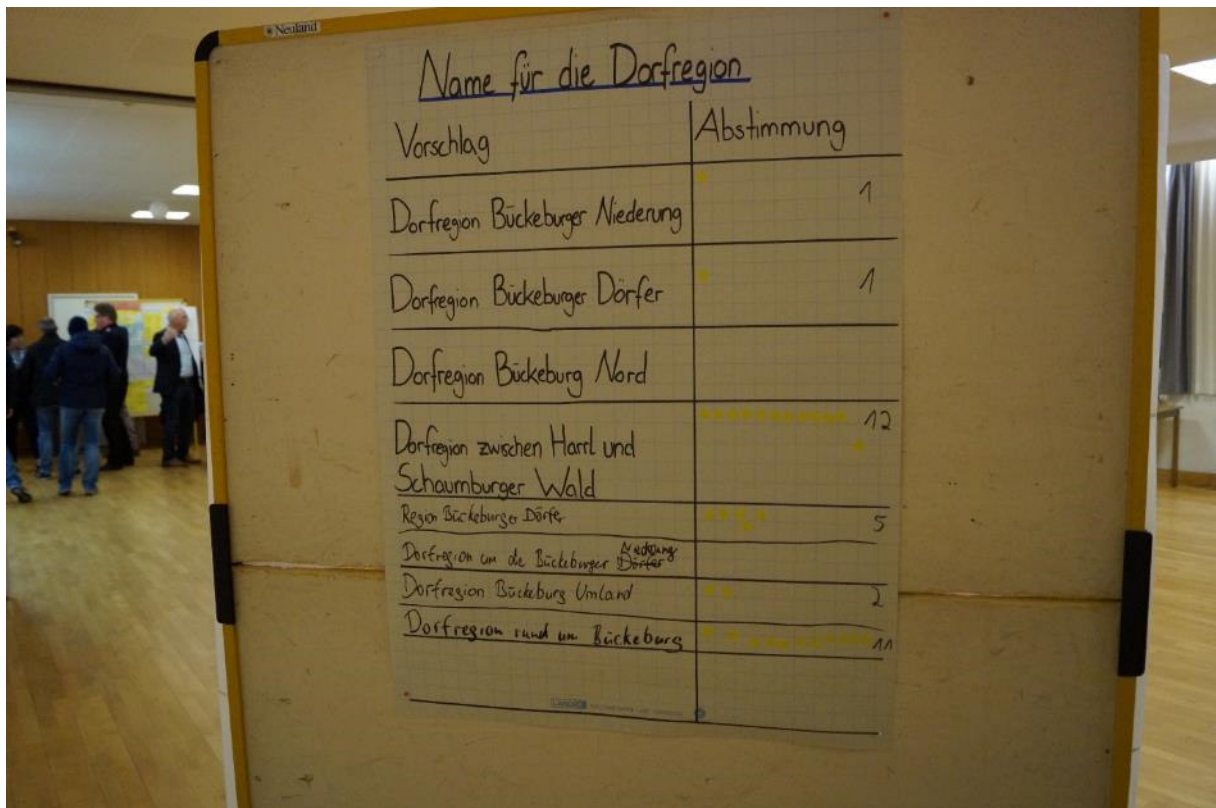 Neuland
Name für die Dorfregion
Vorschlag Abstimmung
Dorfregion Bückeburger Niederung 1
Dorfregion Bückeburger Dörfer 1
Dorfregion Bückeburg Nord
Dorfregion zwischen Harrl und 12
Schaumburger Wald
Region Bückeburger Dörfer 5
Niederung
Dorfregion um die Bückeburger Dörfer
Dorfregion Bückeburg Umland 2
Dorfregion rund um Bückeburg 11